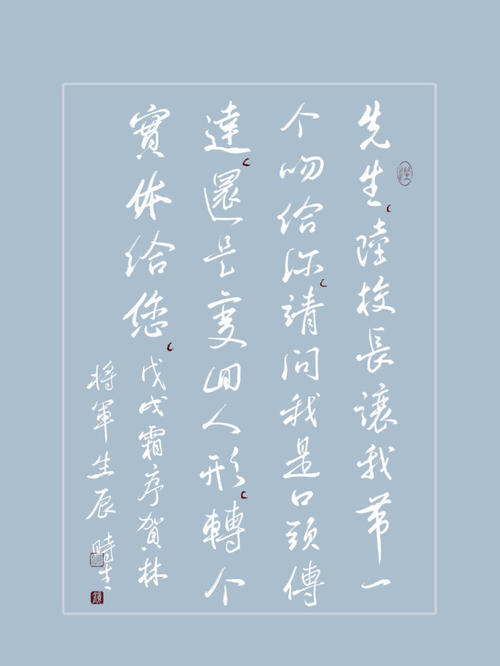 先生陸校長讓我带一
个吻给你請问我是口頭傳
達還是变回人形轉个
實体给您
戊戌霜序贺林
将軍生辰